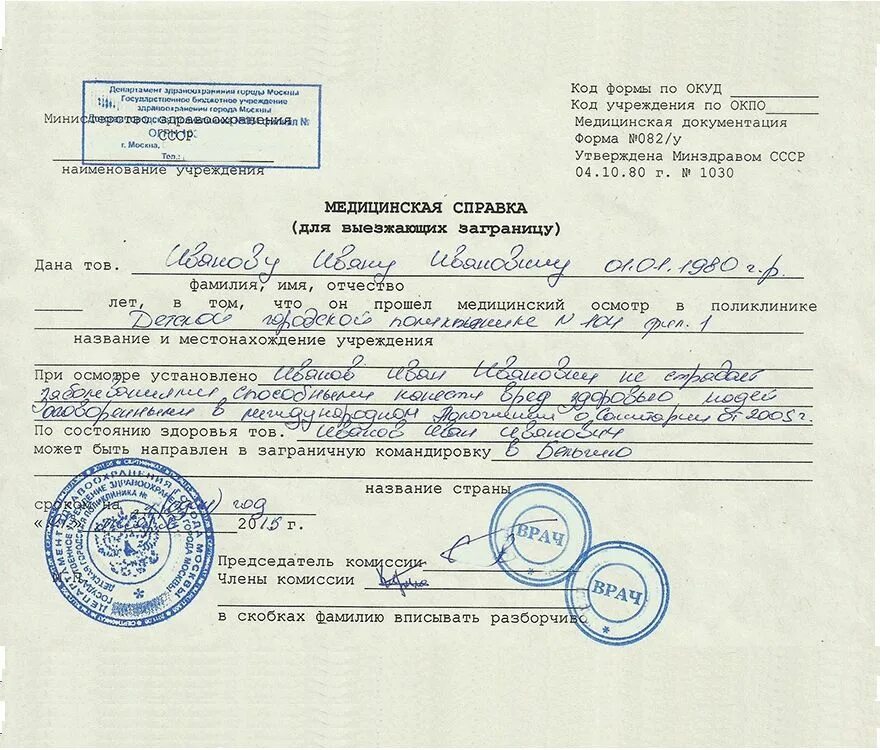 Департамент здравоохранения города Москвы
Государственное бюджетное учреждение
здравоохранения города Москвы
Министерство здравоохранения
СССР
г. Москва,
Тел.:
наименование учреждения
Код формы по ОКУД
Код учреждения по ОКПО
Медицинская документация
Форма №082/у
Утверждена Минздравом СССР
04.10.80 г. № 1030
МЕДИЦИНСКАЯ СПРАВКА
(для выезжающих заграницу)
Дана тов. Иванову Ивану Ивановичу 01.01.1980 г.р.
фамилия, имя, отчество
лет, в том, что он прошел медицинский осмотр в поликлинике
Детской городской поликлинике N 104 фил. 1
название и местонахождение учреждения
При осмотре установлено Иванов Иван Иванович не страдает
заболеваниями способными нанести вред здоровью людей
оговоренными в международном Положении о Санитарии от 2005 г.
По состоянию здоровья тов. Иванов Иван Иванович
может быть направлен в заграничную командировку в Бельгию
название страны
сроком на 1 (один) год
2015 г.
Председатель комиссии
Члены комиссии
в скобках фамилию вписывать разборчиво
ВРАЧ
ВРАЧ